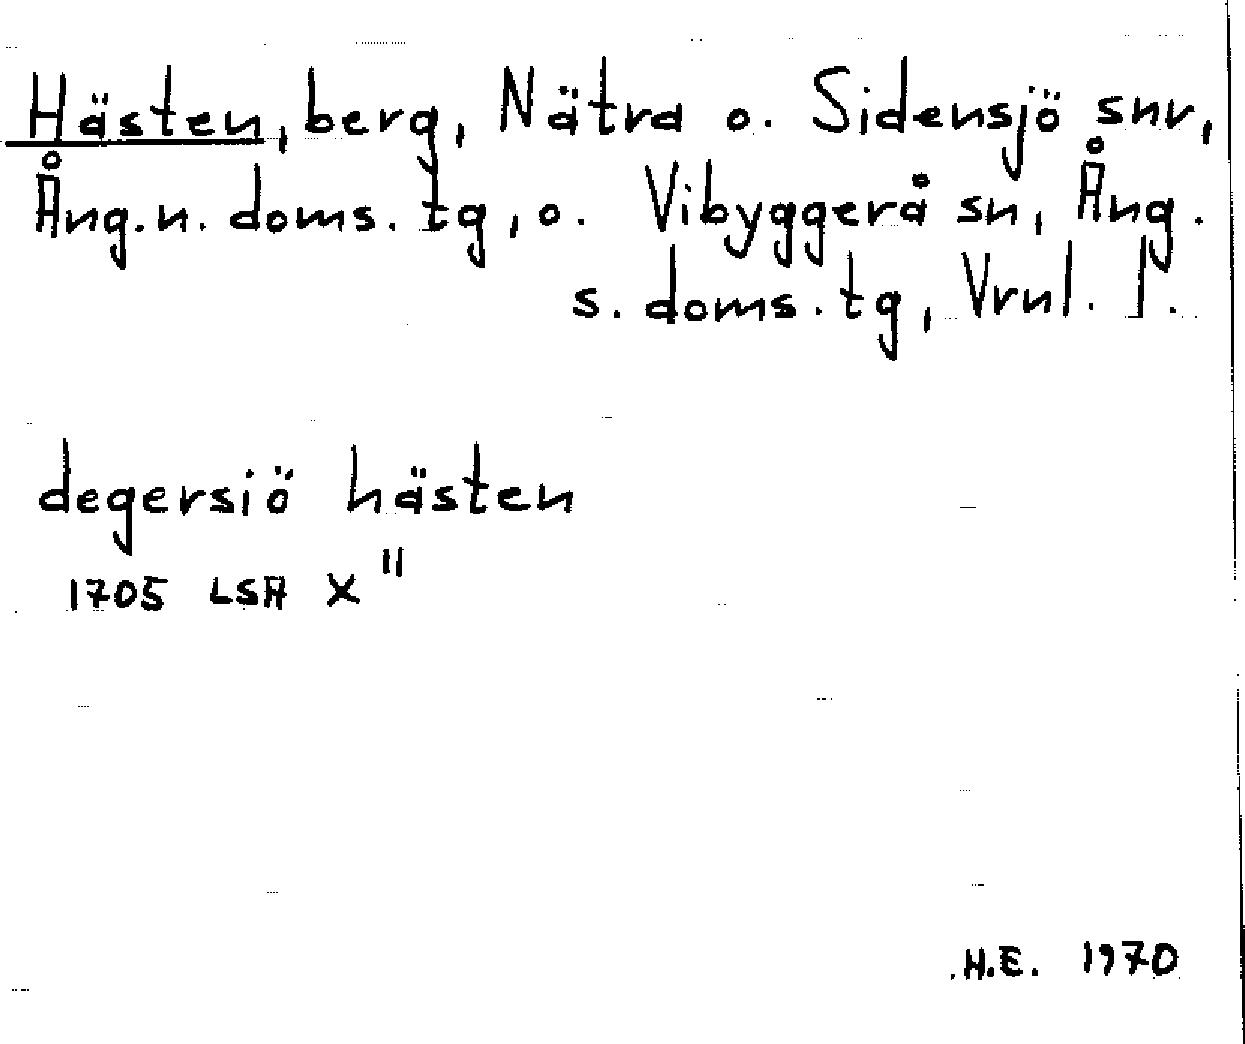 Hästen, berg, Nätra o. Sidensjö snr,
Ång.n. doms.tg, o. Vibyggerå sn, Ång.
s. doms.tg, Vrnl. l.
degersiö hästen
1705 LSA X"
H.E. 1970